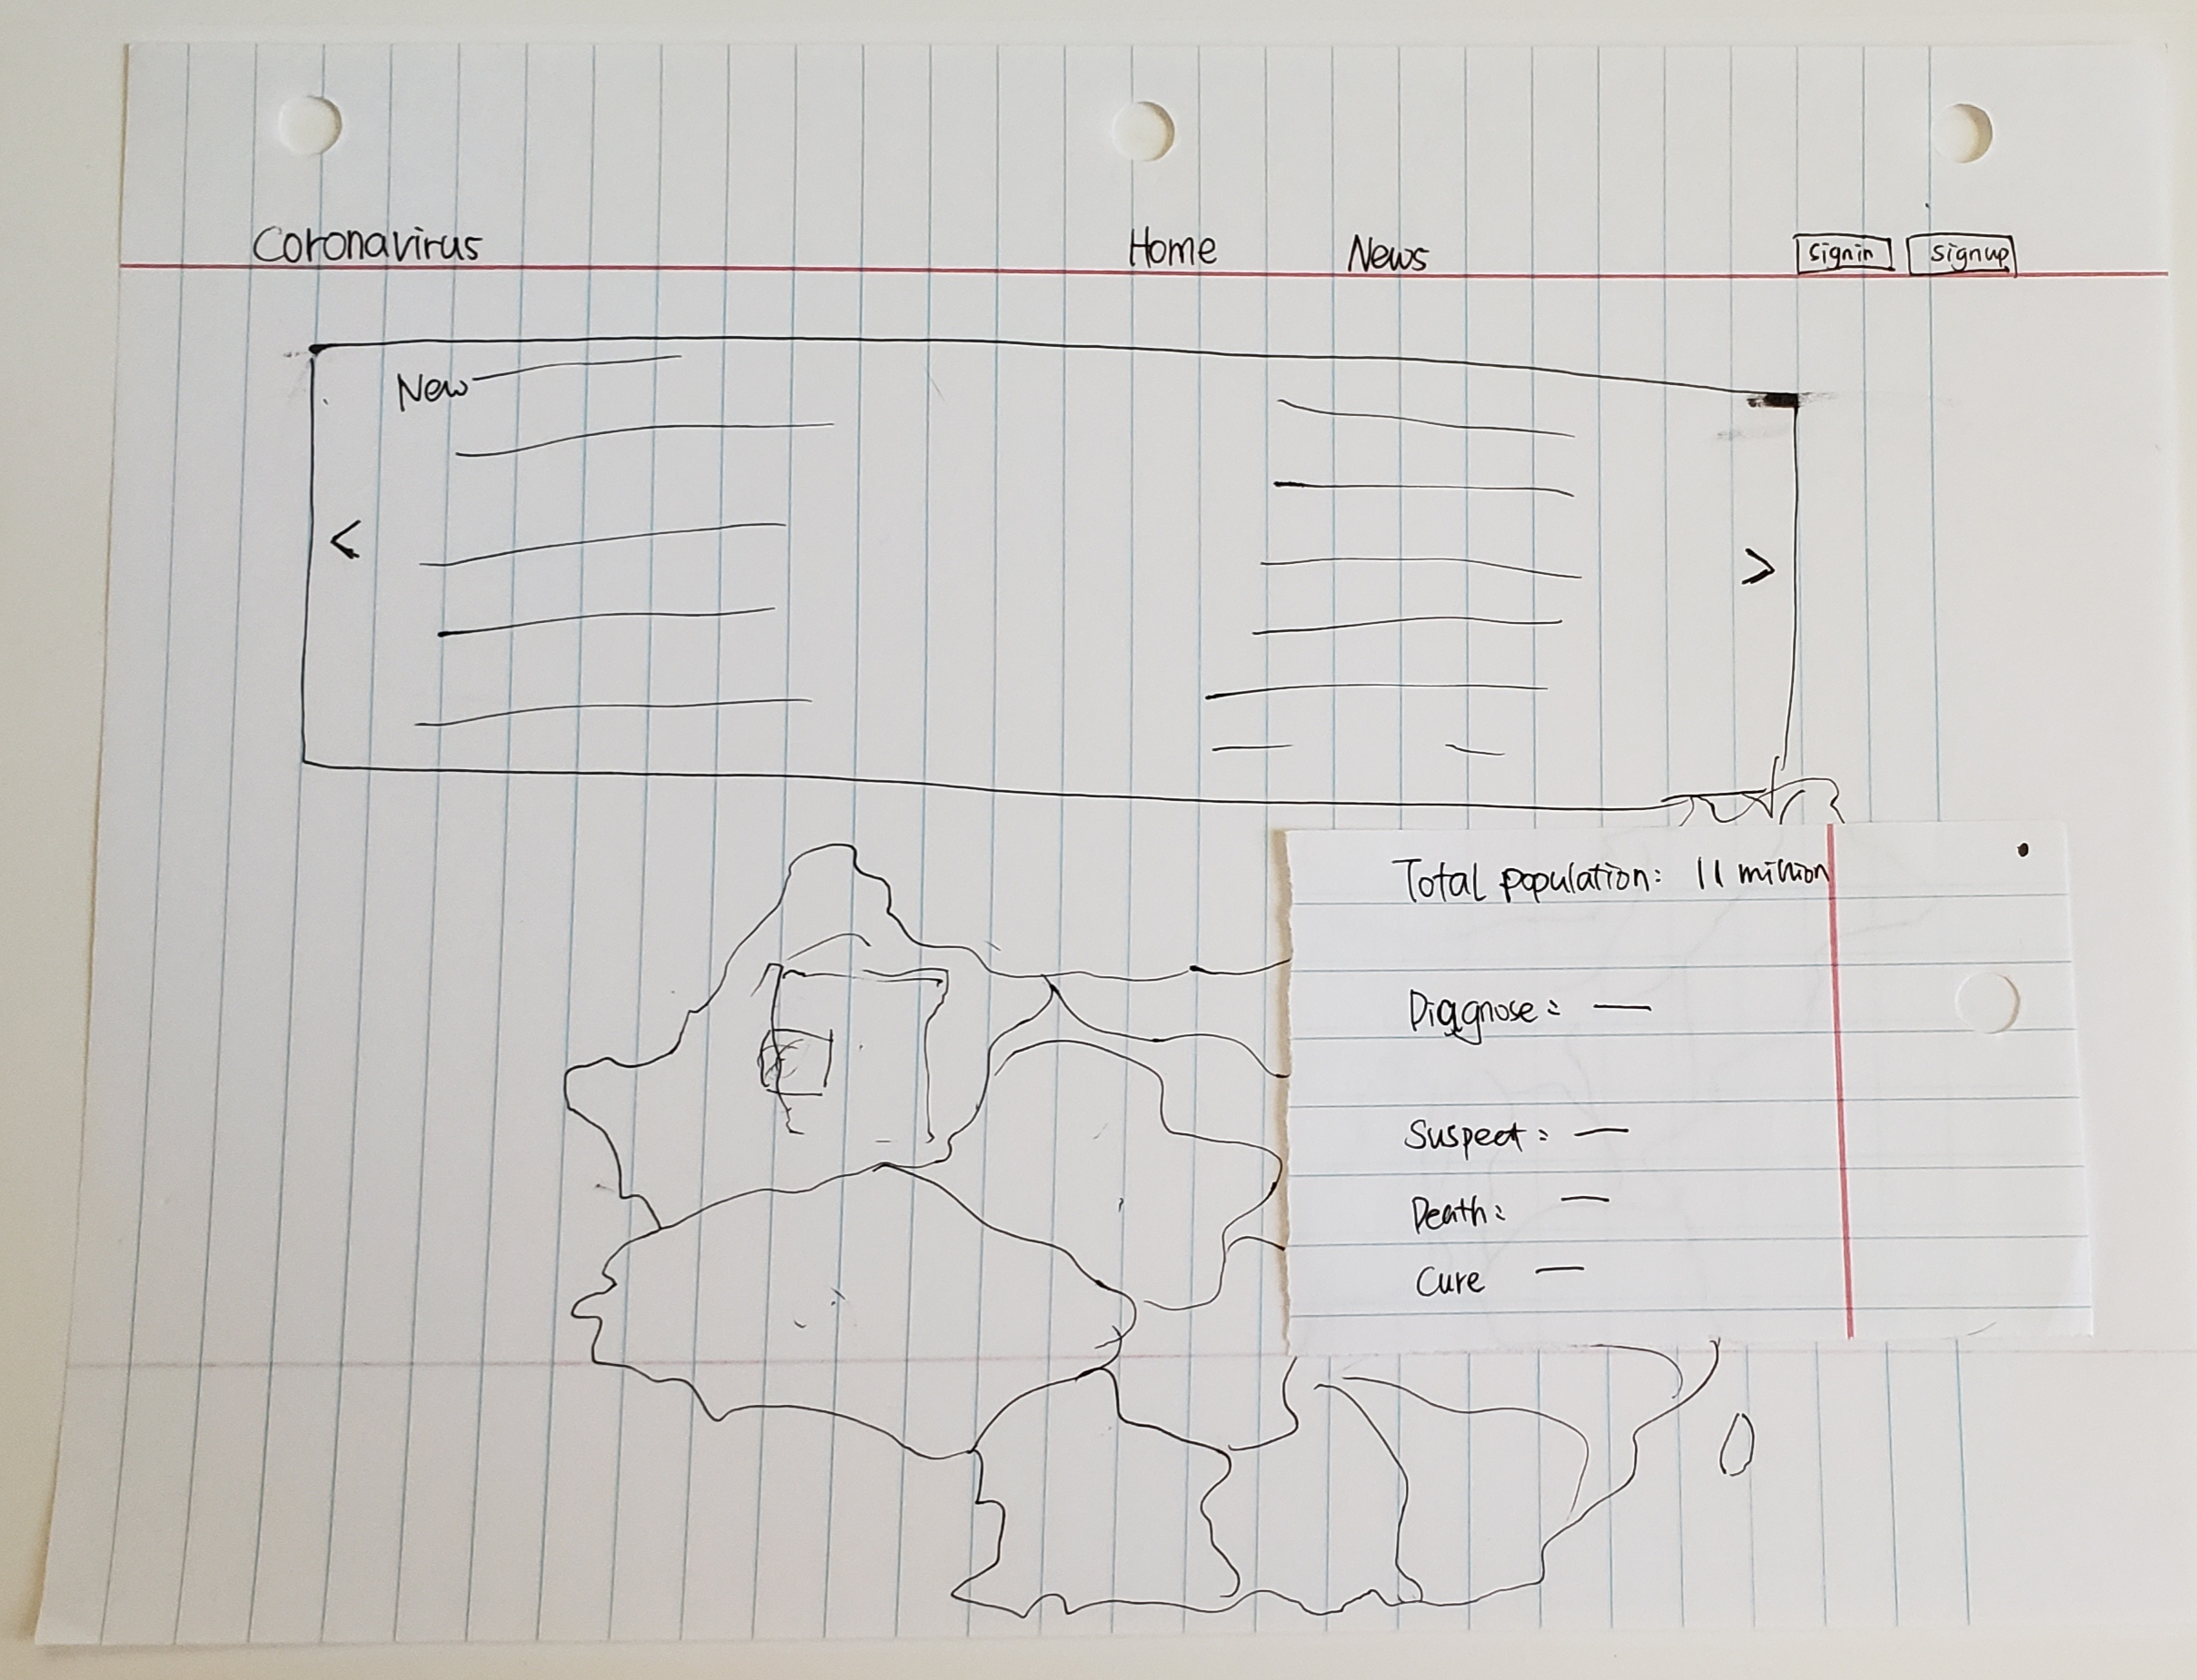 Coronavirus Home News Signin Signup
New
< >
Total population: 11 million
Diagnose: —
Suspect: —
Death: —
Cure —